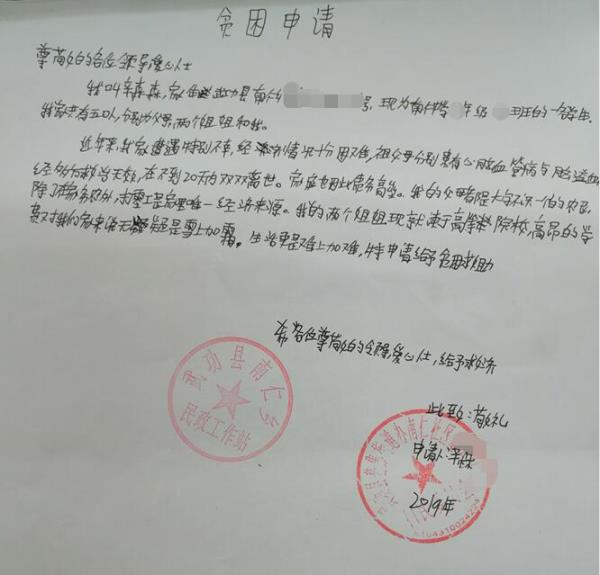 贫困申请
尊敬的各位领导爱心人士
我叫 森森,家住 武功县南仁 号,现为南仁 年级 班的一名学生.
我家共有五口人,分别为父母,两个姐姐和我.
近年来,我家遭遇特别不幸,经济情况十分困难,祖父母分别患有心脑血管病与脑溢血
经多方救治无效,在不到20天内双双离世。家庭也因此债务高垒。我的父母是大字不识一个的农民,
除了务农 ,打零工是 唯一经济来源。我的两个姐姐现就读于高等院校,高昂的学
费对我们家来说无疑是雪上加霜。生活更是难上加难,特申请给予贫困救助
希各位尊敬的领导,爱心人士,给予救济
此致:敬礼
申请人: 森
2019年
武功县南仁乡
民政工作站
办南仁社区
6104310024224